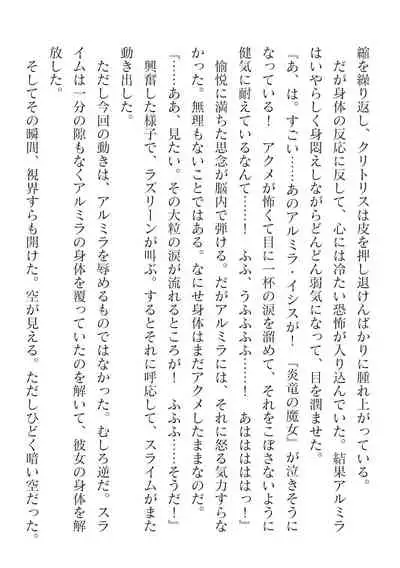 縮を繰り返し、クリトリスは皮を押し退けんばかりに腫れ上がっている。
だが身体の反応に反して、心には冷たい恐怖が入り込んでいた。結果アルミラ
はいやらしく身悶えしながらどんどん弱気になっていって、目を潤ませた。
『あ、は。すごい……あのアルミラ・イシスが！　『炎竜の魔女』が泣きそうに
なっている！　アクメが怖くて目に一杯の涙を溜めて、それをこぼさないように
健気に耐えているなんて……！　ふふ、うふふふふ……！　あはははははっ！』
愉悦に満ちた思念が脳内で弾ける。だがアルミラには、それに怒る気力すらな
かった。無理もないことではある。なにせ身体はまだアクメしたままなのだ。
『……ああ、見たい。その大粒の涙が流れるところが！　ふふふ……そうだ！』
興奮した様子で、ラズリーンが叫ぶ。するとそれに呼応して、スライムがまた
動き出した。
ただし今回の動きは、アルミラを辱めるものではなかった。むしろ逆だ。スラ
イムは一分の隙もなくアルミラの身体を覆っていたのを解いて、彼女の身体を解
放した。
そしてその瞬間、視界すらも開けた。空が見える。ただしひどく暗い空だった。